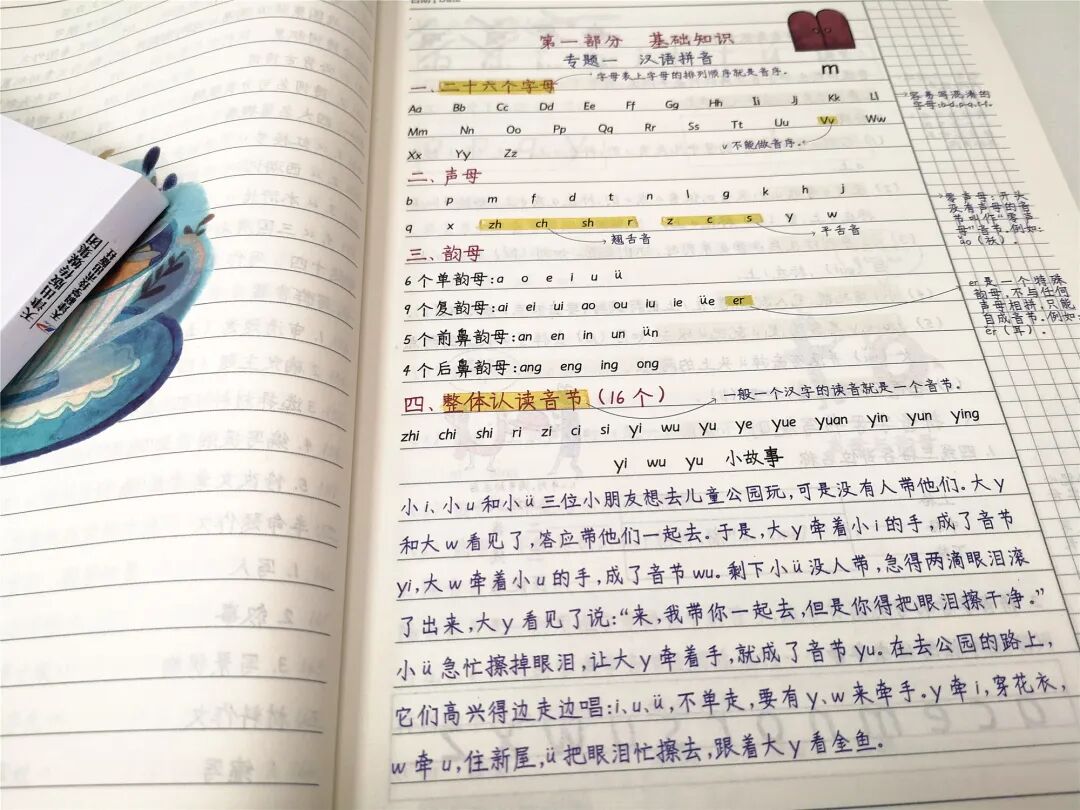 第一部分 基础知识
专题一 汉语拼音
m
字母表上字母的排列顺序就是音序.
一、二十六个字母
Aa Bb Cc Dd Ee Ff Gg Hh Ii Jj Kk Ll
容易写混淆的
Mm Nn Oo Pp Qq Rr Ss Tt Uu Vv Ww
Xx Yy Zz
v不能做音序.
二、声母
b p m f d t n l g k h j
q x zh ch sh r z c s y w
翘舌音
平舌音
零声母:开头
没有声母的音
节叫作“零声
母”音节.例如:
三、韵母
6个单韵母:a o e i u ü
9个复韵母:ai ei ui ao ou iu ie üe er
er是一个特殊
韵母,不与任何
声母相拼,只能
自成音节.例如:
ěr(耳).
5个前鼻韵母:an en in un ün
4个后鼻韵母:ang eng ing ong
四、整体认读音节(16个)
一般一个汉字的读音就是一个音节.
zhi chi shi ri zi ci si yi wu yu ye yue yuan yin yun ying
yi wu yu 小故事
小i、小u和小ü三位小朋友想去儿童公园玩,可是没有人带他们.大y
和大w看见了,答应带他们一起去.于是,大y牵着小i的手,成了音节
yi,大w牵着小u的手,成了音节wu.剩下小ü没人带,急得两滴眼泪滚
了出来,大y看见了说:“来,我带你一起去,但是你得把眼泪擦干净.”
小ü急忙擦掉眼泪,让大y牵着手,就成了音节yu.在去公园的路上,
它们高兴得边走边唱:i、u、ü,不单走,要有y、w来牵手.y牵i,穿花衣,
w牵u,住新屋,ü把眼泪忙擦去,跟着大y看金鱼.